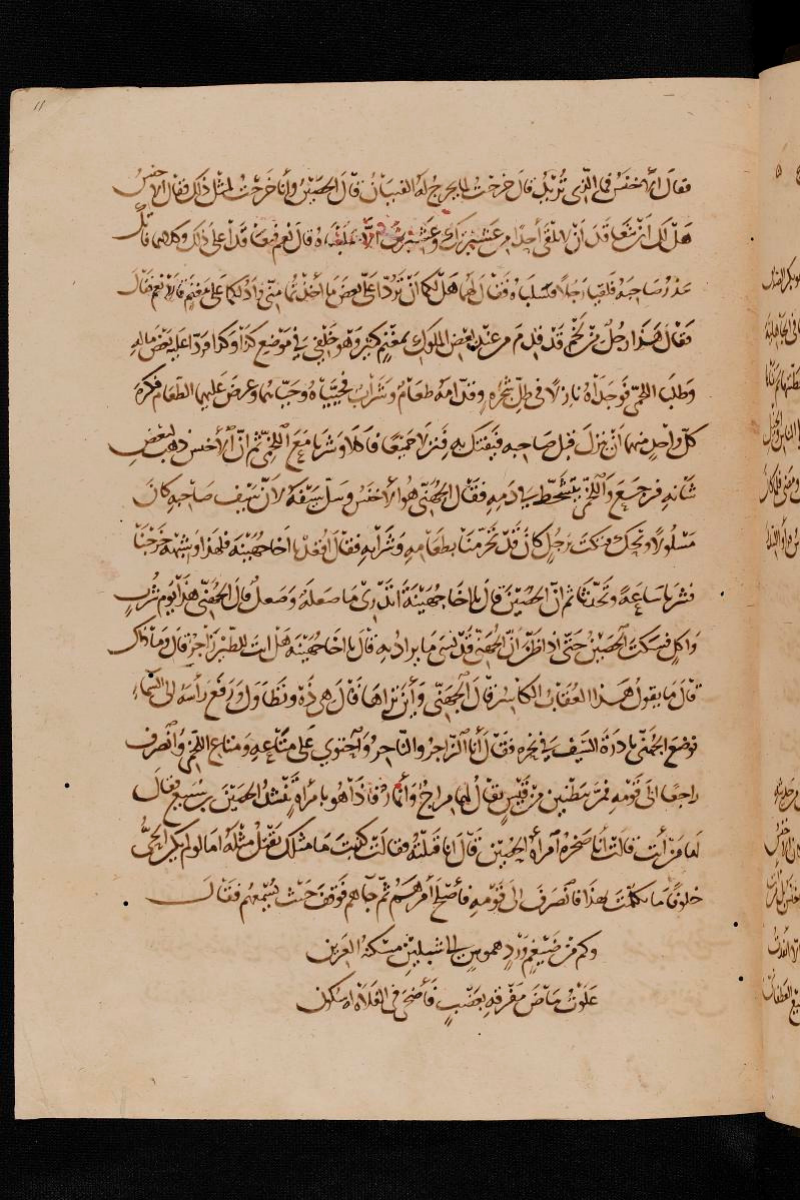 11
فقال الاخنس فما الذى تريد قال خرجت لما يخرج له الفتيان قال الحصين وانا خرجت لمثل ذلك فقال الاخنس
هل لك ان نتعاقد ان لا نلقى احدا من عشيرتك وعشيرتى الا سلبناه قال نعم فتعاقدا على ذلك وكلاهما فاتك
غدر صاحبه فلقيا رجلا فسلباه فقال لهما هل لكما ان تردا على بعض ما اخذتما منى وادلكما على مغنم قالا نعم فقال
فقال هذا رجل من لخم قد قدم من عند بعض الملوك بمغنم كثير وهو خلفى فى موضع كذا وكذا فردا عليه بعض ماله
وطلبا اللخمى فوجداه نازلا فى ظل شجره وقدامه طعام وشراب فحيياه وحياهما وعرض عليهما الطعام فكره
كل واحد منهما ان ينزل قبل صاحبه فيفتك به فنزلا جميعا فاكلا وشربا مع اللخمى ثم ان الاخنس ذهب لبعض
شانه فرجع واللخمى يتشحط فى دمه فقال الجهنى هو الاخنس وسل سيفه لان سيف صاحبه كان
مسلولا ويحك فتكت برجل كان قد تحرمنا بطعامه وشرابه فقال اقعد يا اخا جهينه فلهذا وشبهه خرجنا
فشربا ساعة وتحدثا ثم ان الحصين قال يا اخا جهينة اتدرى ما صعلة وصعل قال الجهنى هذا يوم شرب
واكل فسكت الحصين حتى اذا ظن ان الجهنى قد نسى ما يراد به قال يا اخا جهينه هل انت للطير زاجر قال وما ذاك
قال ما يقول هذا العقاب الكاسر قال الجهنى واين تراها قال هى ذه وتطاول ورفع راسه الى السماء
فوضع الجهنى بادرة السيف فى نحره فقال انا الزاجر والناحر واحتوى على متاعه ومتاع اللخمى وانصرف
راجعا الى قومه فمر ببطنين من قيس يقال لهما مراح وانمار فاذا هو بامراة تنشد الحصين بن سبيع فقال
لها من انت قالت انا صخره امرأة الحصين قال انا قتلته فقالت كذبت ما مثلك يقتل مثله اما لو لم يكن الحى
خلوفا ما تكلمت بهذا فانصرف الى قومه فاصلح امرهم ثم جاهم فوقف حيث يسمعهم فقال
وكم من ضيغم ورد هموس ابى شبلين مسكنه العرين
علوت بياض مفرقه بعضب فاضحى فى الفلاة له سكون